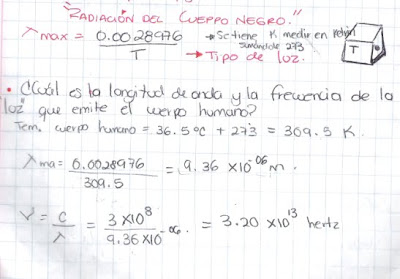 "RADIACIÓN DEL CUERPO NEGRO."
λ max = 0.0028976 / T → Se tiene K medir en Kelvin sumándole 273
→ Tipo de luz.
T
• ¿Cuál es la longitud de onda y la frecuencia de la
"luz" que emite el cuerpo humano?
Tem. cuerpo humano = 36.5°C + 273 = 309.5 K.
λ ma = 0.0028976 / 309.5 = 9.36 X10^-06 m.
V = C / λ = 3 X10^8 / 9.36 X10^-06 = 3.20 X10^13 hertz